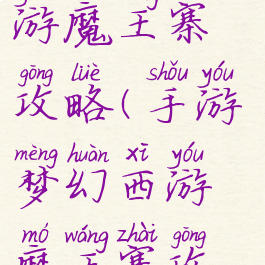 游魔王寨
gōng lüè shǒu yóu
攻略(手游
mèng huàn xī yóu
梦幻西游
mó wáng zhài gōng
魔王寨攻